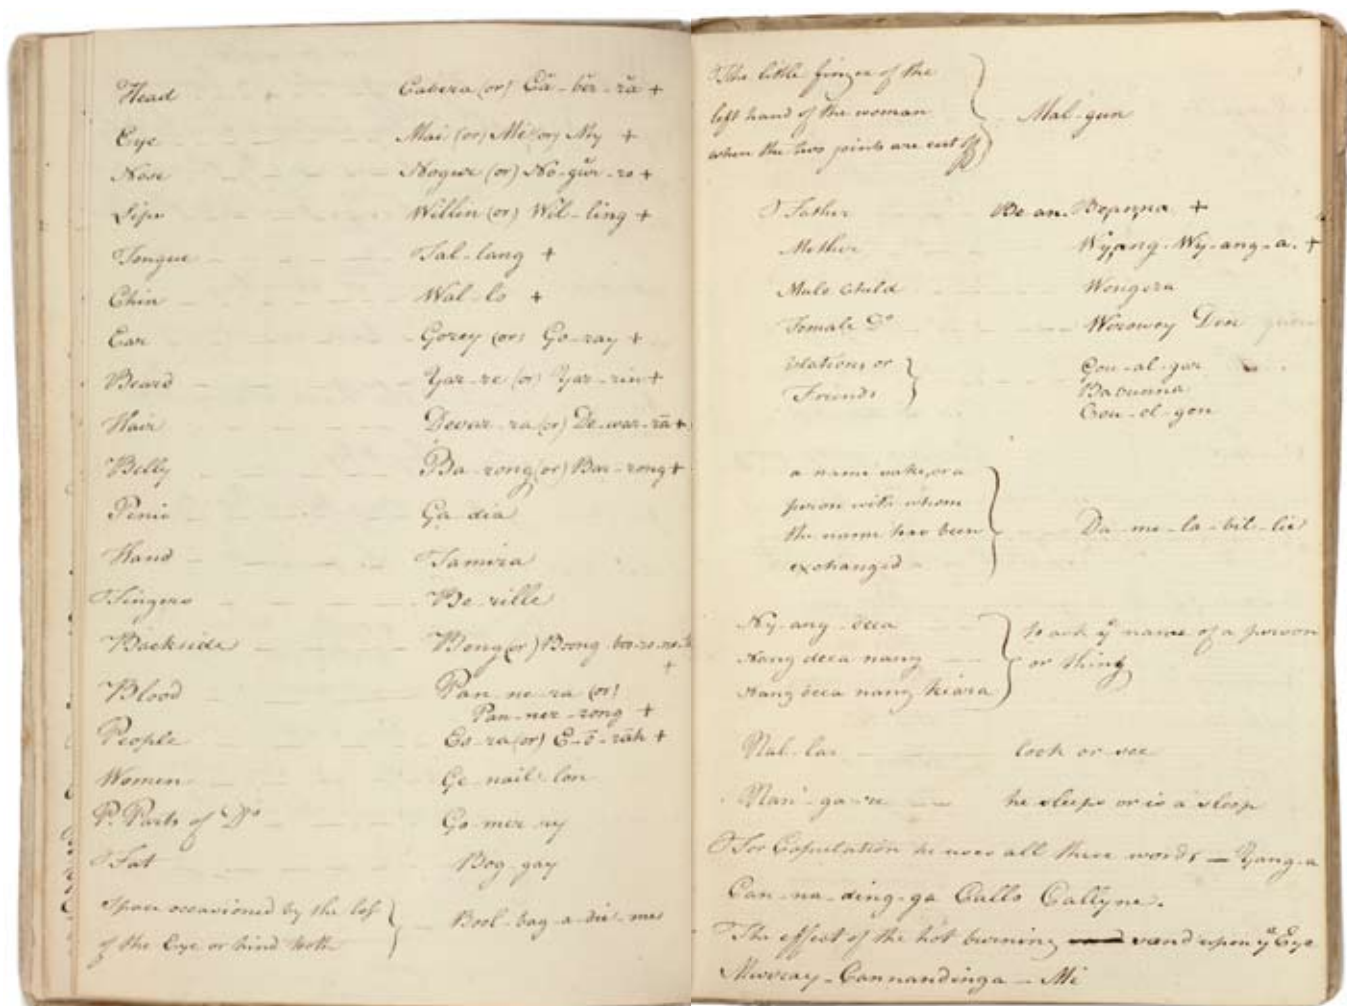 Head Cabera (or) Cā-ber-rā +
Eye Mai (or) Mi (or) My +
Nose Nogur (or) No-gur-ro +
Lips Willin (or) Wil-ling +
Tongue Tal-lang +
Chin Wal-lo +
Ear Gorey (or) Go-ray +
Beard Yar-re (or) Yar-rin +
Hair Dewar-ra (or) De-war-rā +
Belly Ba-rong (or) Bar-rong +
Penis Ga-dia
Hand Tamira
Fingers Be-rille
Backside Bong (or) Boong
+
Blood Pan-ne-ra (or)
Pan-ner-rong +
People Eo-ra (or) E-ō-rāh +
Women Ge-nail-lon
P. Parts of Do Go-mer-ry
Fat Bog-gay
Space occasioned by the loss
of the Eye or hind teeth } Bool-bag-a-die-me
The little finger of the
left hand of the woman } Mal-gun
when the two joints are cut off
Father Be-an. Beanna +
Mother Wyang. Wy-ang-a. +
Male Child Wongera
Female Do Werowey Din
relations or } Gou-al-gar
Friends Babunna
Cou-el-gon
a name sake, or a
person with whom
the name has been } Da-me-la-bil-lie
exchanged
Ny-ang-ēēa } to ask ye name of a person
Nang deea nang or thing
Nang ēēa nang kiara
Nal-lar look or see
Nan-ga-re he sleeps or is a sleep
For Copulation he uses all these words — Yang-a
Can-na-ding-ga Callo Callyne.
The effect of the hot burning sand upon ye Eye
Murray-Cannandinga — Mi